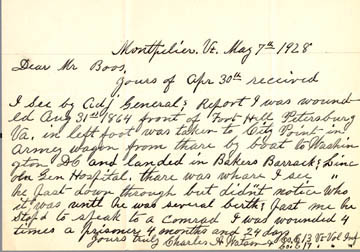 Montpelier, Vt. May 7th 1928
Dear Mr Boos,
Yours of Apr 30th received
I see by Adj General's Report I was wound
ed Aug 31st 1864 front of Fort Hell Petersburg
Va. in left foot was taken to City Point in
Army wagon from thare by boat to Washin
gton DC and landed in Bakers Barrack's Linc
oln Gen Hospital. thare was whare I see " "
he Past down through but didn't notice who
it was until he was several berths Past me he
Stop'd to speak to a Comrad I was wounded 4
times a prisoner 4 months and 24 days
Yours truly Charles H. Watson Vt Vol Inf